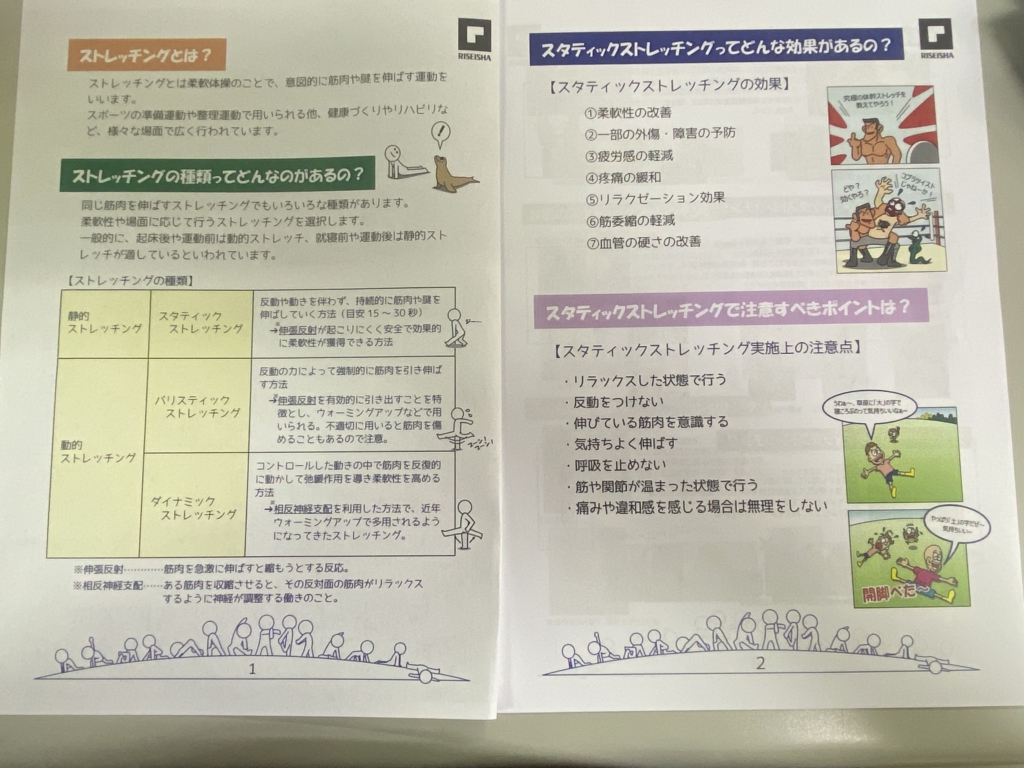 RISEISHA
ストレッチングとは？
ストレッチングとは柔軟体操のことで、意図的に筋肉や腱を伸ばす運動を
いいます。
スポーツの準備運動や整理運動で用いられる他、健康づくりやリハビリな
ど、様々な場面で広く行われています。
！
ストレッチングの種類ってどんなのがあるの？
同じ筋肉を伸ばすストレッチングでもいろいろな種類があります。
柔軟性や場面に応じて行うストレッチングを選択します。
一般的に、起床後や運動前は動的ストレッチ、就寝前や運動後は静的スト
レッチが適しているといわれています。
【ストレッチングの種類】
静的
ストレッチング
スタティック
ストレッチング
反動や動きを伴わず、持続的に筋肉や腱を
伸ばしていく方法（目安15～30秒）
→※伸張反射が起こりにくく安全で効果的
に柔軟性が獲得できる方法
動的
ストレッチング
バリスティック
ストレッチング
反動の力によって強制的に筋肉を引き伸ば
す方法
→※伸張反射を有効的に引き出すことを特
徴とし、ウォーミングアップなどで用
いられる。不適切に用いると筋肉を傷
めることもあるので注意。
ダイナミック
ストレッチング
コントロールした動きの中で筋肉を反復的
に動かして弛緩作用を導き柔軟性を高める
方法
→※相反神経支配を利用した方法で、近年
ウォーミングアップで多用されるよう
になってきたストレッチング。
※伸張反射…………筋肉を急激に伸ばすと縮もうとする反応。
※相反神経支配……ある筋肉を収縮させると、その反対面の筋肉がリラックス
するように神経が調整する働きのこと。
1
RISEISHA
スタティックストレッチングってどんな効果があるの？
【スタティックストレッチングの効果】
①柔軟性の改善
②一部の外傷・障害の予防
③疲労感の軽減
④疼痛の緩和
⑤リラクゼーション効果
⑥筋萎縮の軽減
⑦血管の硬さの改善
究極の体幹ストレッチを
教えてやろう！
どや？
効くやろ？
コブラツイスト
じゃねーか！
スタティックストレッチングで注意すべきポイントは？
【スタティックストレッチング実施上の注意点】
・リラックスした状態で行う
・反動をつけない
・伸びている筋肉を意識する
・気持ちよく伸ばす
・呼吸を止めない
・筋や関節が温まった状態で行う
・痛みや違和感を感じる場合は無理をしない
うわぁ～、草原に「大」の字で
寝ころぶのって気持ちいいなぁ～
やっぱり「土」の字だぜ～
気持ちいい～
開脚べた～
2